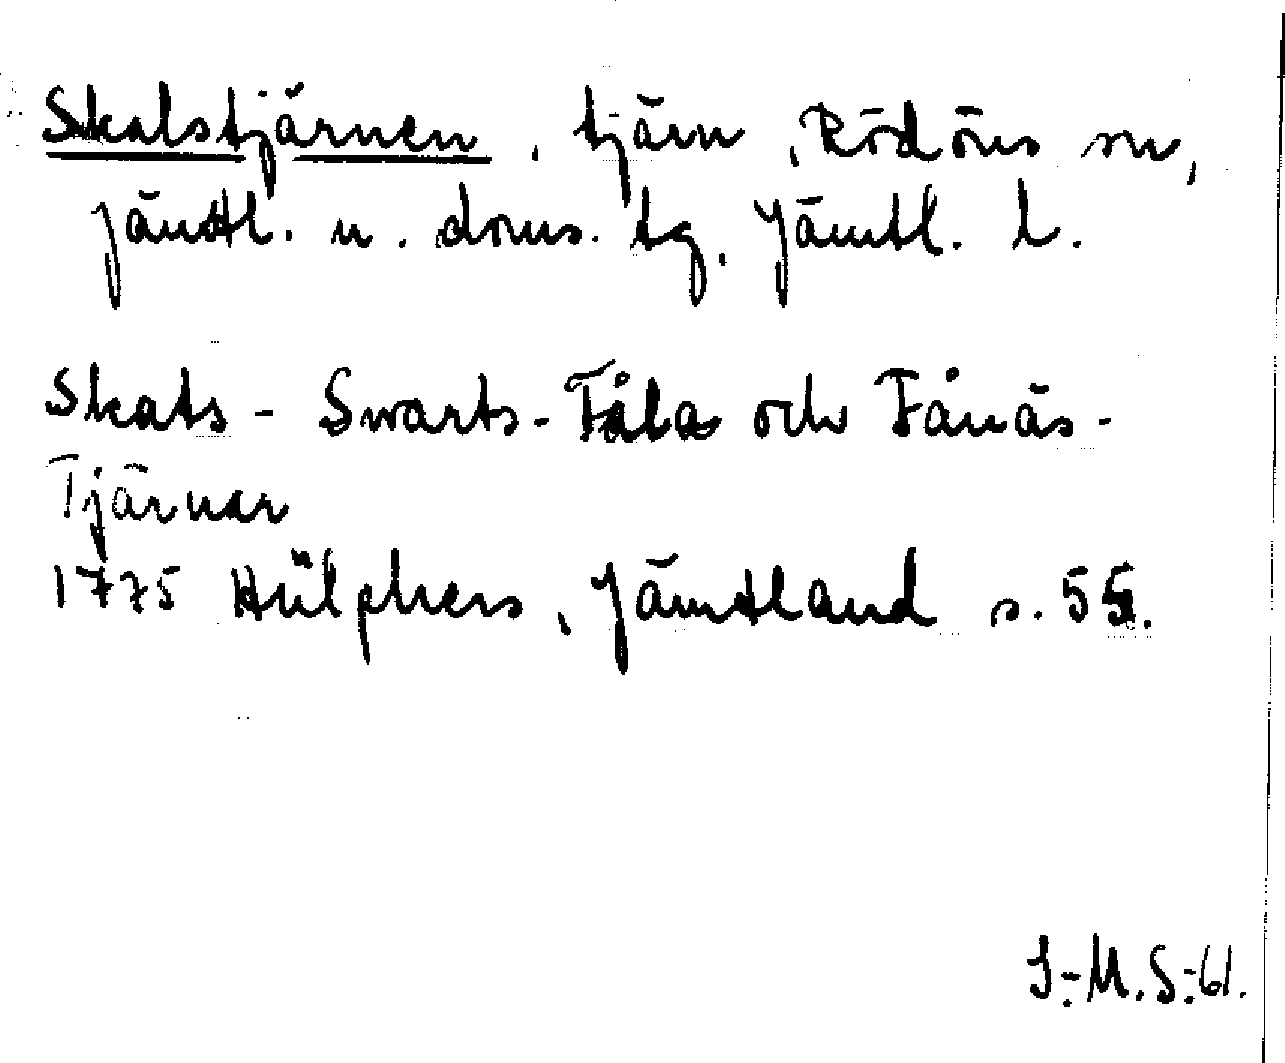 Skalstjärnen, tjärn, Rödöns sn,
Jämtl. n. doms. tg. Jämtl. l.
Skats- Swarts-Fåla och Fånäs-
Tjärnar
1775 Hülphers, Jämtland s. 55.
I-M.S-61.